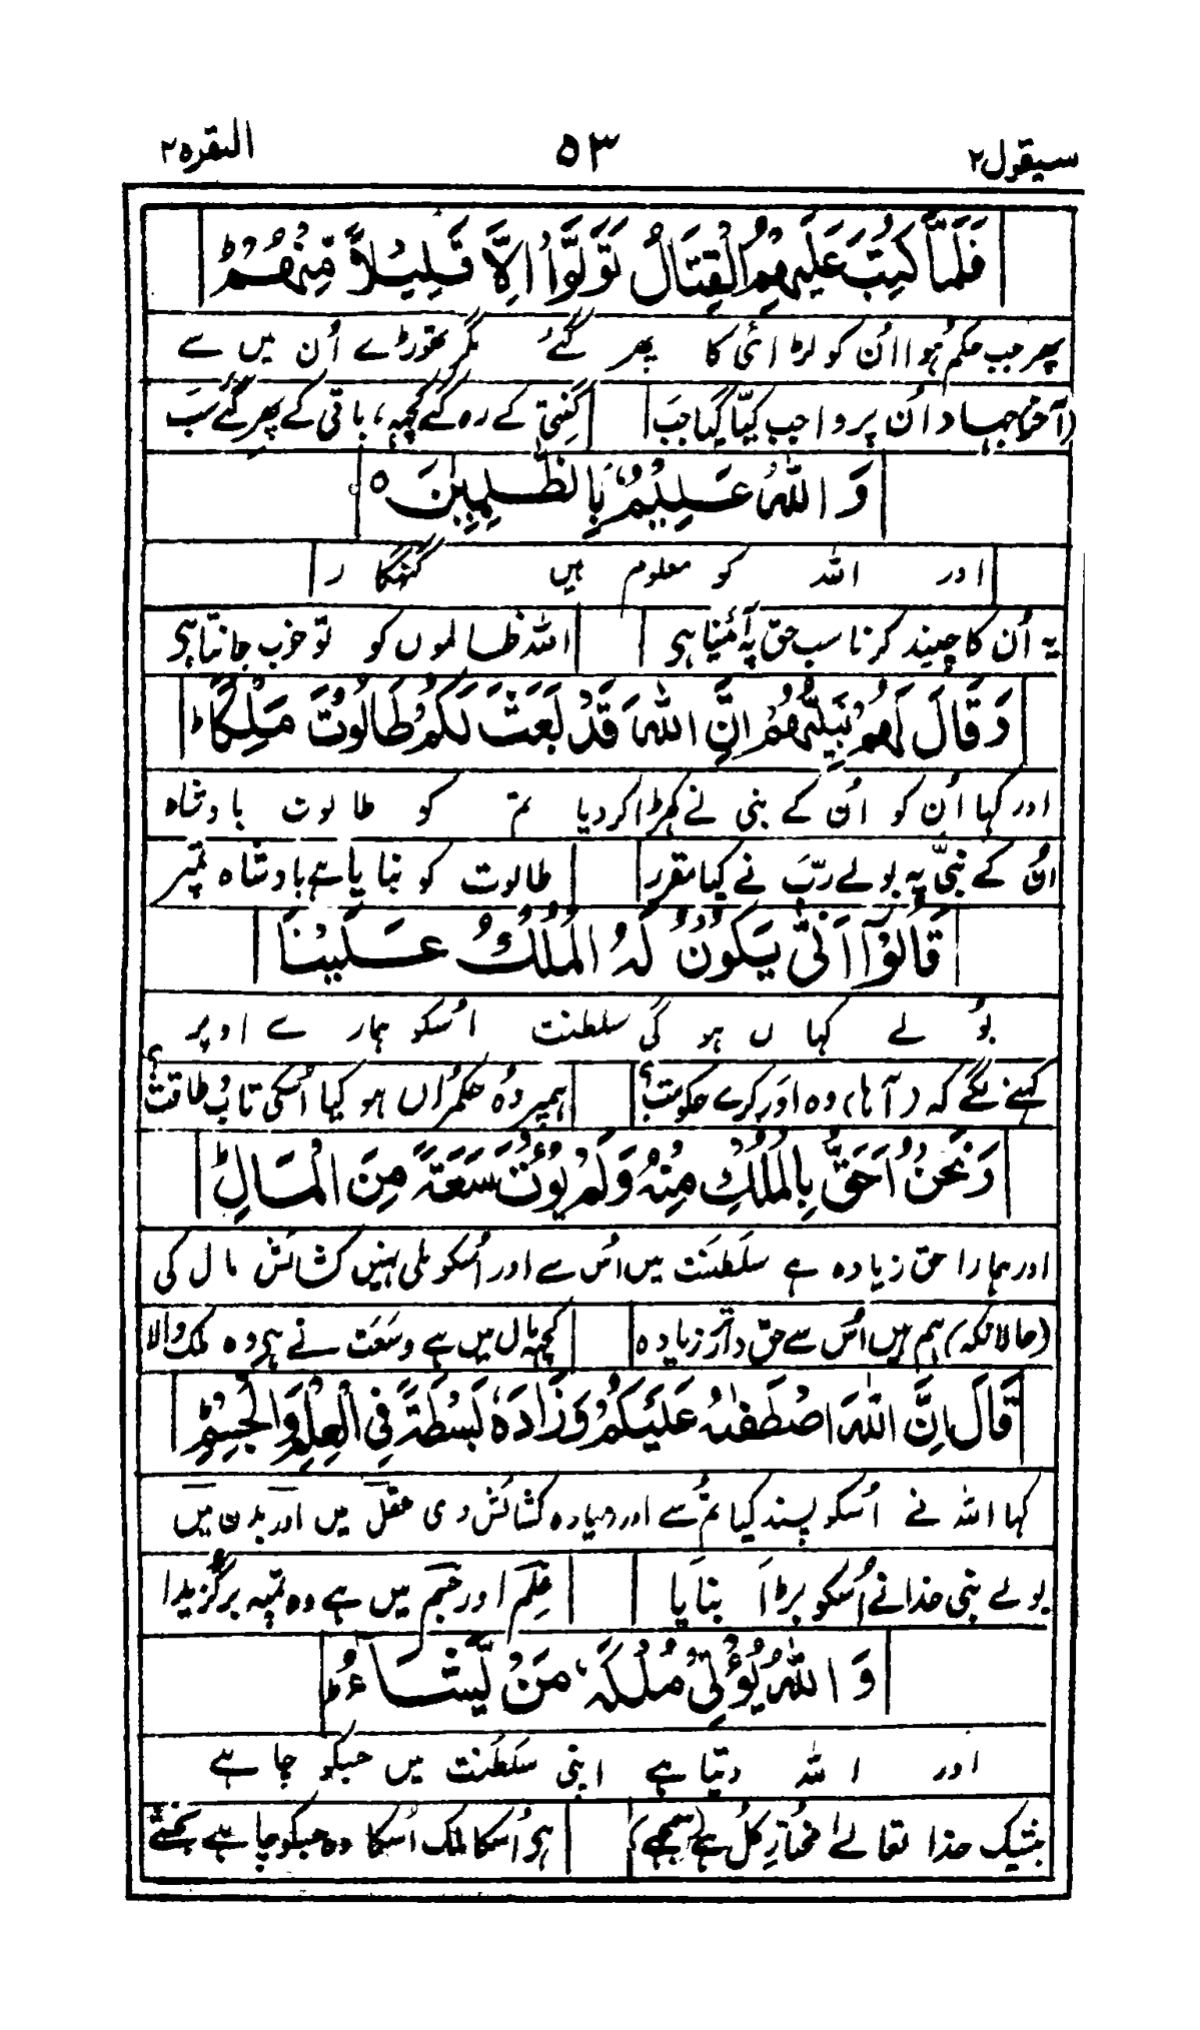 سیقول۲ ۵۳ البقرہ۲
فَلَمَّا كُتِبَ عَلَيْهِمُ الْقِتَالُ تَوَلَّوْا اِلَّا قَلِيْلًا مِّنْهُمْ ؕ
پھر جب حکم ہُوا اُن کو لڑائی کا پھر گئے مگر تھوڑے اُن میں سے
(آخر) جہاد اُن پر واجب کیَا گیَا جَب گنتی کے رہ گئے کچہہ، باقی کے پھر گئے سَب
وَاللّٰهُ عَلِيْمٌۢ بِالظّٰلِمِيْنَ ○
اور اللہ کو معلوم ہیں گنہگار
یہ اُن کا چیند کرنا سب حق پہ آئینا ہی اللہ ظالموں کو تو خوب جانتا ہی
وَقَالَ لَهُمْ نَبِيُّهُمْ اِنَّ اللّٰهَ قَدْ بَعَثَ لَكُمْ طَالُوْتَ مَلِكًا ؕ
اور کہا اُن کو اُن کے نبی نے کھڑا کر دیا تم کو طالوت بادشاہ
اُن کے نبیؑ یہ بولے ربّ نے کیا مقرر طالوت کو بنایا ہے بادشاہ تمپر
قَالُوْٓا اَنّٰى يَكُوْنُ لَهُ الْمُلْكُ عَلَيْنَا
بولے کہاں ہوگی سلطنت اُسکو ہمارے اوپر
کہنے لگے کہ (آہا) وہ اور کرے حکومت؟ ہمپر وُہ حکمُراں ہو کیا اُسکی تاب طاقت؟
وَنَحْنُ اَحَقُّ بِالْمُلْكِ مِنْهُ وَلَمْ يُؤْتَ سَعَةً مِّنَ الْمَالِ ؕ
اور ہمارا حق زیادہ ہے سلطنت میں اُس سے اور اُسکو ملی نہیں کشائش مال کی
(حالانکہ) ہم ہیں اُس سے حق دار زیادہ کچہہ مال میں ہے وسعَت نے ہی وہ ملک والا
قَالَ اِنَّ اللّٰهَ اصْطَفٰىهُ عَلَيْكُمْ وَزَادَهٗ بَسْطَةً فِي الْعِلْمِ وَالْجِسْمِ ؕ
کہا اللہ نے اُسکو پسند کیا تمُ سے اور زیادہ کشائش دی عقل میں اور بدن میں
بولے نبی خدا نے اُسکو بڑا بنایا عِلم اور جسم میں ہے وہ تمپہ برگزیدا
وَاللّٰهُ يُؤْتِيْ مُلْكَهٗ مَنْ يَّشَآءُ ؕ
اور اللہ دیتا ہے اپنی سَلطَنت میں جسکو چاہے
بیشک خدا تعالےٰ مختارِ کُل ہے (سمجھے) ہی اُسکا ملک اُسکا وہ جسکو چاہے بخشے